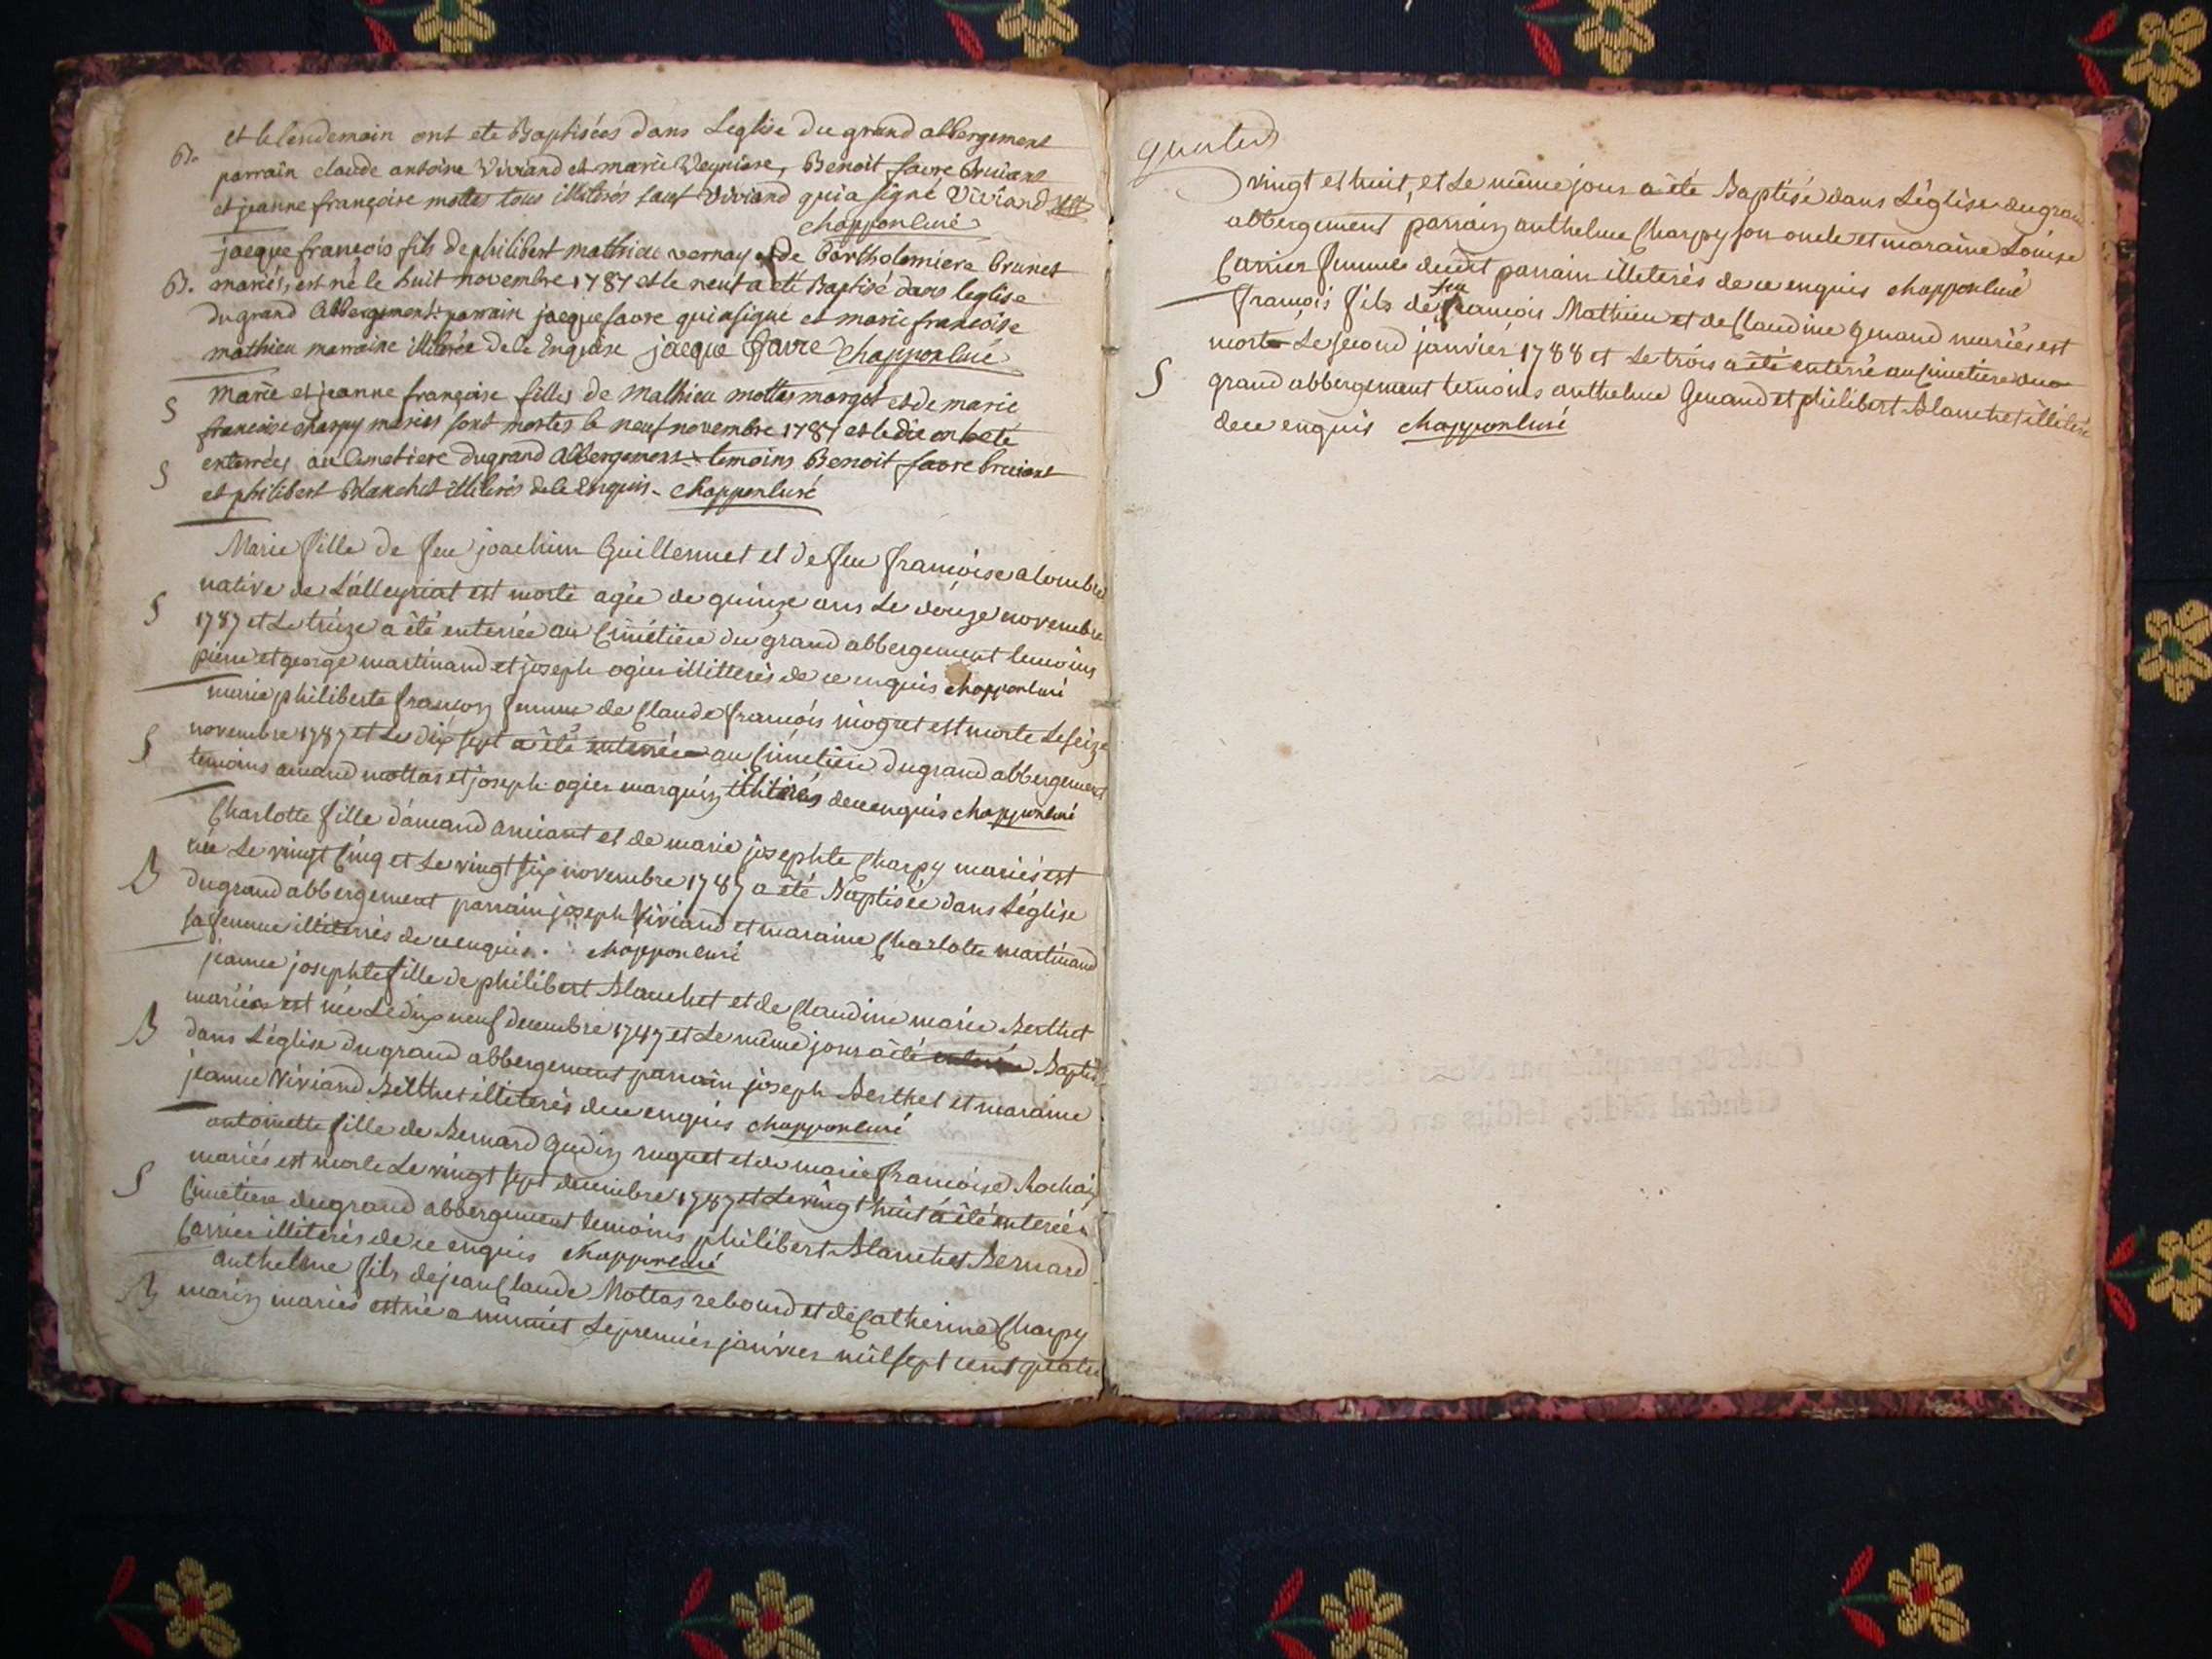 et le lendemain ont ete Baptisées dans Leglise du grand abbergement
B. parrain claude antoine Viviand et marie
Benoit favre bruiant
et jeanne françoise mottas tous illiterés sauf Viviand qui a signé Viviand
chapponluré
jacque françois fils de philibert mathieu vernay et de Bartholomiere brunet
B. mariés, est né le huit novembre 1787 et le neuf a été Baptisé dans leglise
du grand Abbergement: parrain jacque favre qui a signé et marie françoise
mathieu marraine illiterée de ce Enquise jacque favre chapponluré
Marie et jeanne françoise filles de Mathieu mottas margot et de marie
S françoise charpy mariés sont mortes le neuf novembre 1787 et le dix ont eté
enterrées au Cimetiere du grand Abbergement: temoins Benoit favre bruiant
S et philibert Blanchet illiterés de ce Enquis. chapponluré
Marie fille de feu joachim Guillermet et de feu françoise alombert
native de Lalleyriat est morte agée de quinze ans Le douze novembre
S 1787 et Le treize a êté enterrée au Cimétiere du grand abbergement temoins
pierre et george martinand et joseph ogier illitterés de ce enquis chapponluré
marie philiberte françon femme de Claude françois niogret est morte Le seize
novembre 1787 et Le dix sept a êté enterrée au Cimetiere du grand abbergement
S temoins amand mottas et joseph ogier marquin illiterés de ce enquis chapponluré
Charlotte fille d'amand amiant et de marie josephte Charpy mariés est
née Le vingt Cinq et Le vingt six novembre 1787 a êté Baptisée dans L'église
B du grand abbergement parrain joseph Viviand et maraine Charlotte martinand
sa femme illiterrés de ce enquis. chapponluré
jeanne josephte fille de philibert Blanchet et de Claudine marie Berthet
mariés est née Le dix neuf decembre 1787 et Le même jour a êté enterrée Baptisé
B dans L'église du grand abbergement parrain joseph Berthet et maraine
jeanne Viviand Berthet illiterés de ce enquis chapponluré
antoinette fille de Bernard Gudin ruguet et de marie françoise Rochaix
mariés est morte Le vingt sept decembre 1787 et Le vingt huit a êté enterée
S Cimetiere du grand abbergement temoins philibert Blanchet Bernard
Carrier illiterés de ce enquis chapponluré
anthelme fils de jean Claude Mottas rebourd et de Catherine Charpy
B marin mariés est né a minuit Le premier janvier mil sept cent quatre
quatre
vingt et huit, et Le même jour a été Baptisé dans L'église du grand
abbergement parrain anthelme Charpy son oncle et maraine Loüise
Carrier femme dudit parrain illeterés de ce enquis chapponluré
françois fils de feu françois Mathieu et de Claudine Genand mariés est
mort Le second janvier 1788 et Le trois a êté enterré au Cimetiere du
S grand abbergement temoins anthelme Genand et philibert Blanchet illiterés
de ce enquis chapponluré